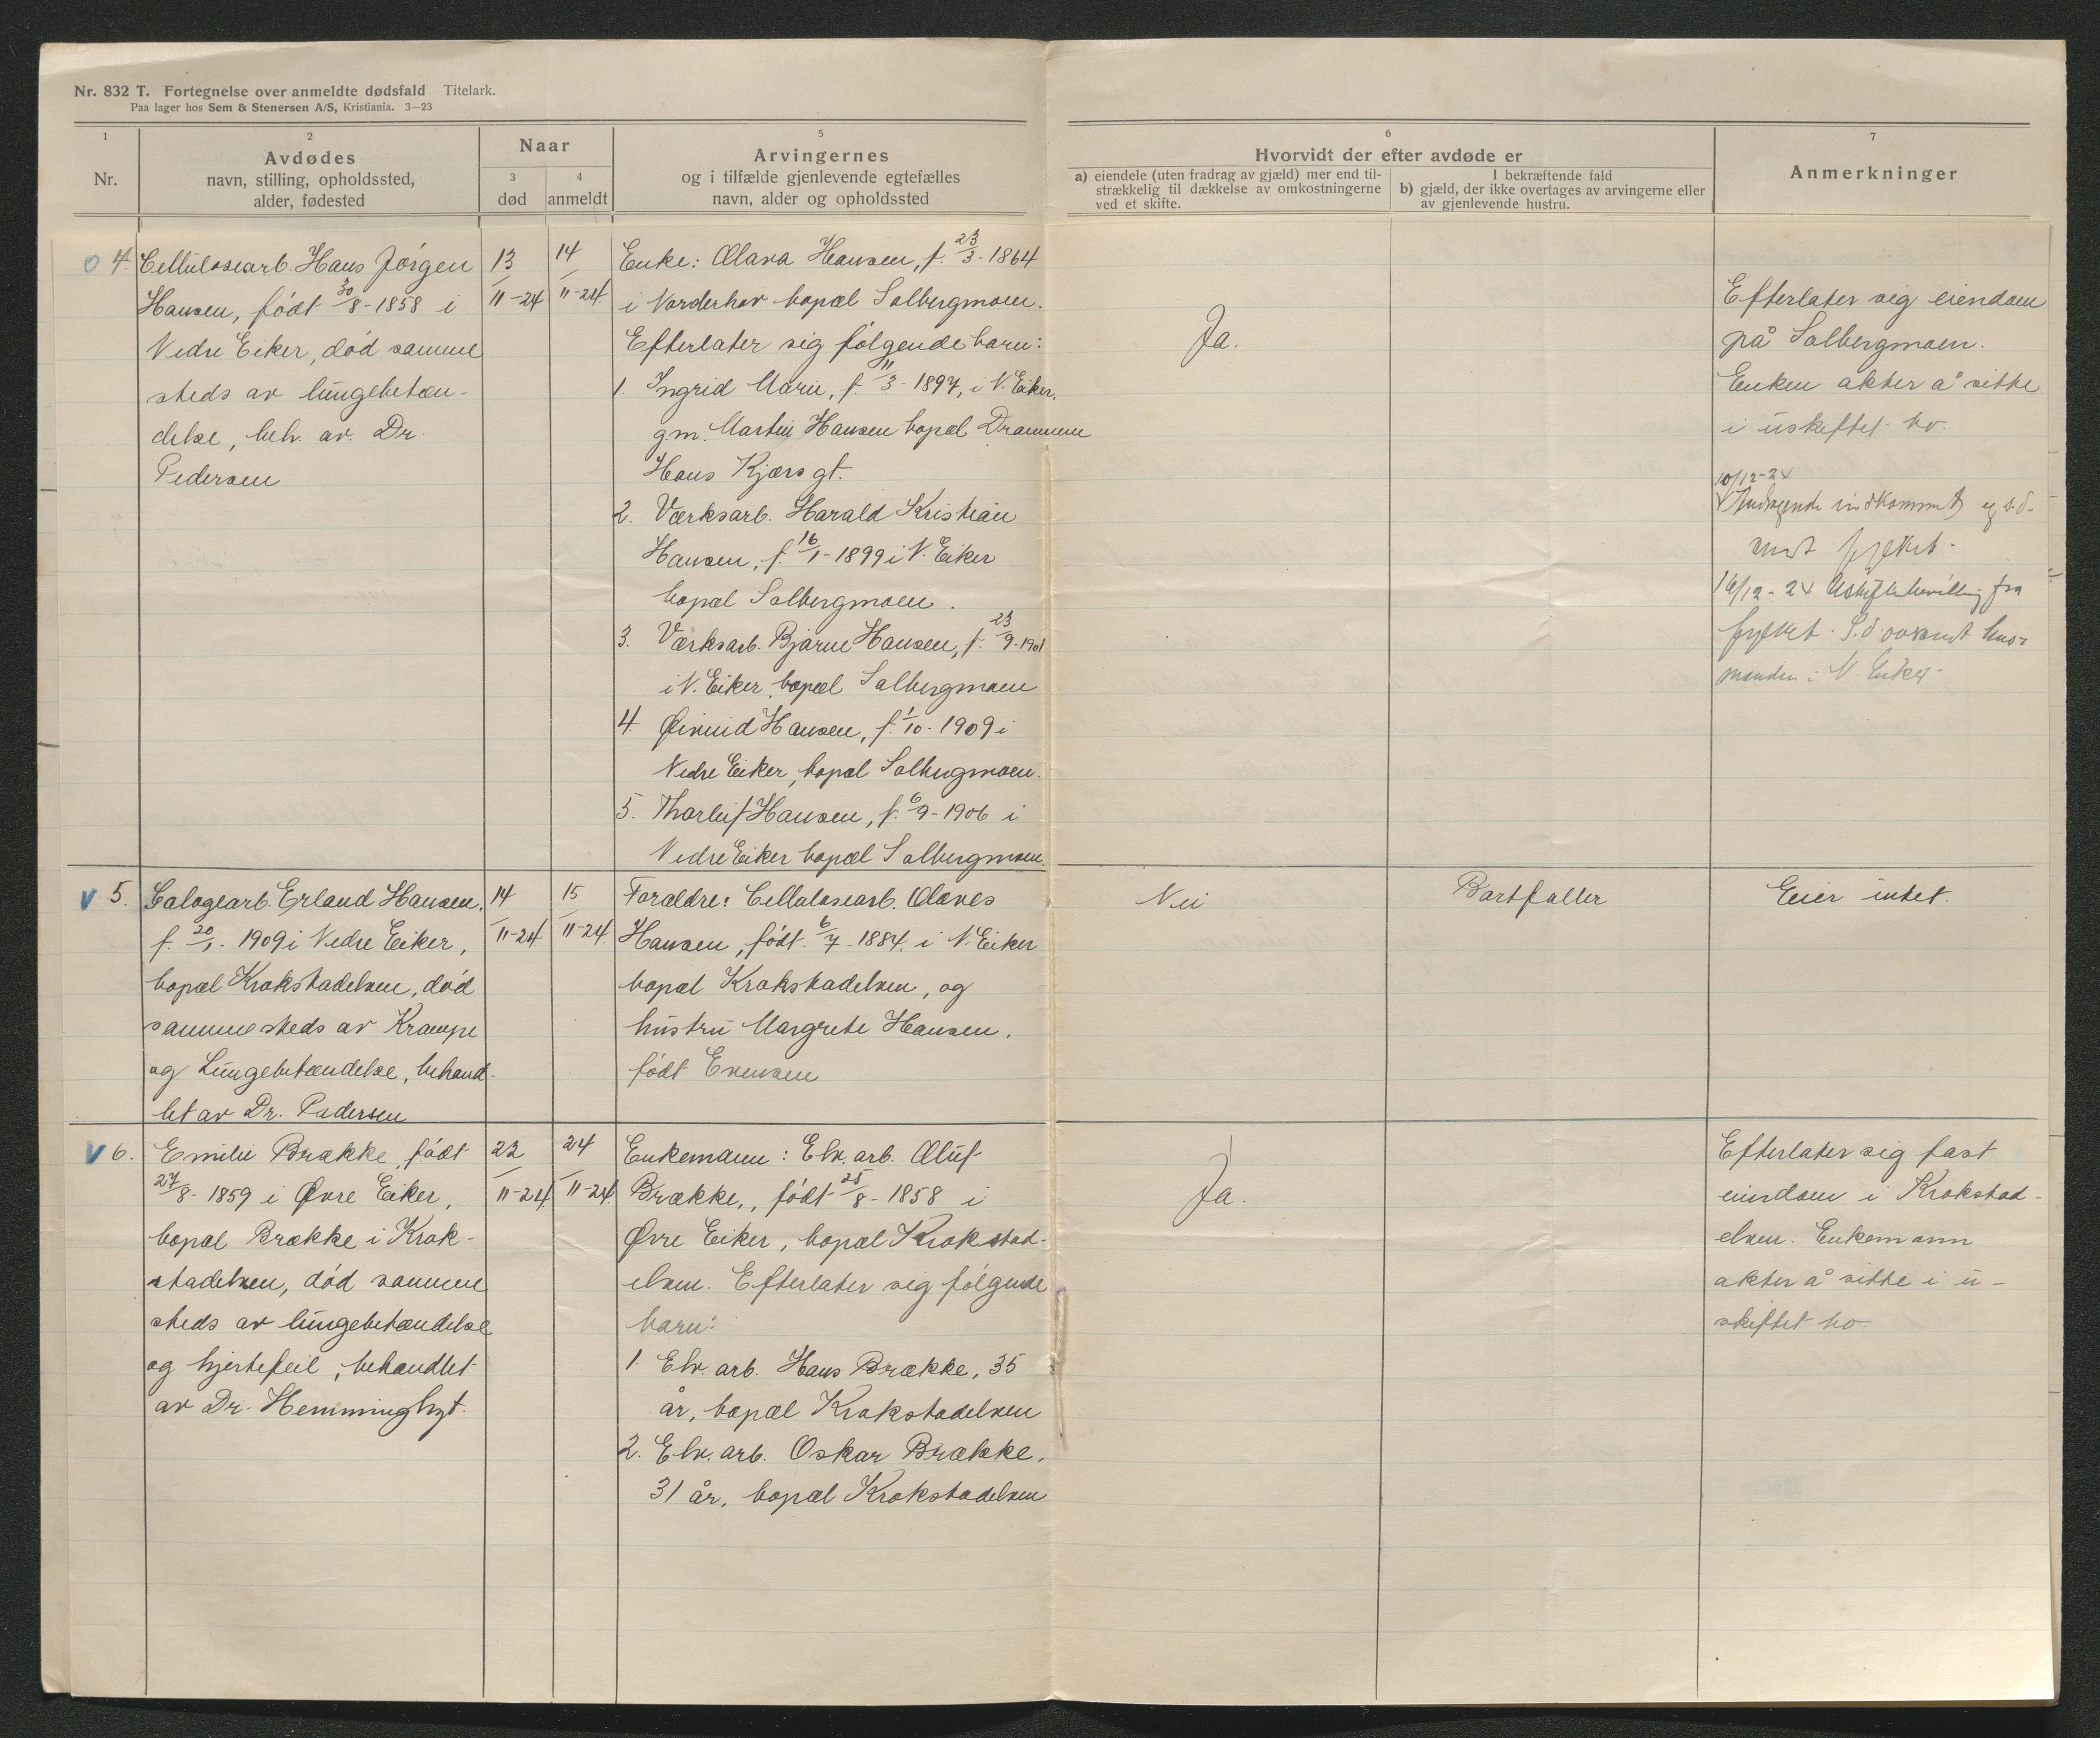 Nr. 832 T. Fortegnelse over anmeldte dødsfald Titelark.
Paa lager hos Sem & Stenersen A/S, Kristiania. 3—23
1
Nr.
2
Avdødes
navn, stilling, opholdssted,
alder, fødested
Naar
3
død
4
anmeldt
5
Arvingernes
og i tilfælde gjenlevende egtefælles
navn, alder og opholdssted
6
Hvorvidt der efter avdøde er
a) eiendele (uten fradrag av gjæld) mer end til-
strækkelig til dækkelse av omkostningerne
ved et skifte.
I bekræftende fald
b) gjæld, der ikke overtages av arvingerne eller
av gjenlevende hustru.
7
Anmerkninger
4.
Cellulosearb. Hans Jørgen
Hansen, født 30/8-1858 i
Nedre Eiker, død samme
steds av lungebetæn-
delse, beh. av Dr.
Pedersen
13/11-24
14/11-24
Enke: Olava Hansen, f. 23/3-1864
i Norderhov bopæl Solbergmoen.
Efterlater sig følgende barn:
1. Ingrid Marie, f. 11/3-1897, i N. Eiker,
gm. Martin Hansen bopæl Drammen
Hans Kjærs gt.
2. Værksarb. Harald Kristian
Hansen, f. 16/1-1899 i N. Eiker
bopæl Solbergmoen.
3. Værksarb. Bjarne Hansen, f. 23/9-1901
i N. Eiker, bopæl Solbergmoen
4. Øivind Hansen, f. 1/10-1909 i
Nedre Eiker, bopæl Solbergmoen.
5. Thorleif Hansen, f. 6/9-1906 i
Nedre Eiker bopæl Solbergmoen.
Ja.
Efterlater sig eiendom
på Solbergmoen.
Enken akter å sitte
i uskiftet bo.
10/12-24
Andragende indkommet og s.d.
sendt fylket.
16/12-24 Uskiftebevilling fra
fylket. S.d. oversendt lens-
manden i N. Eiker.
V 5.
Calogearb. Erland Hansen,
f. 20/1-1909 i Nedre Eiker,
bopæl Krokstadelven, død
sammesteds av Krampe
og Lungebetændelse, behand-
let av Dr. Pedersen
14/11-24
15/11-24
Forældre: Cellulosearb. Olaves
Hansen, født 6/7-1884. i N. Eiker
bopæl Krokstadelven, og
hustru Margrete Hansen,
født Evensen
Nei
Bortfaller
Eier intet.
V 6.
Emilie Brække, født
27/8-1859 i Øvre Eiker,
bopæl Brække i Krok-
stadelven, død samme
steds av lungebetændelse
og hjertefeil, behandlet
av Dr. Hemminghyt.
22/11-24
24/11-24
Enkemann: Elv. arb. Oluf
Brække,, født 25/8-1858 i
Øvre Eiker, bopæl Krokstad-
elven. Efterlater sig følgende
barn:
1. Elv. arb. Hans Brække, 35
år, bopæl Krokstadelven
2. Elv. arb. Oskar Brække,
31 år, bopæl Krokstadelven
Ja.
Efterlater sig fast
eiendom i Krokstad-
elven. Enkemann
akter å sitte i u-
skiftet bo.